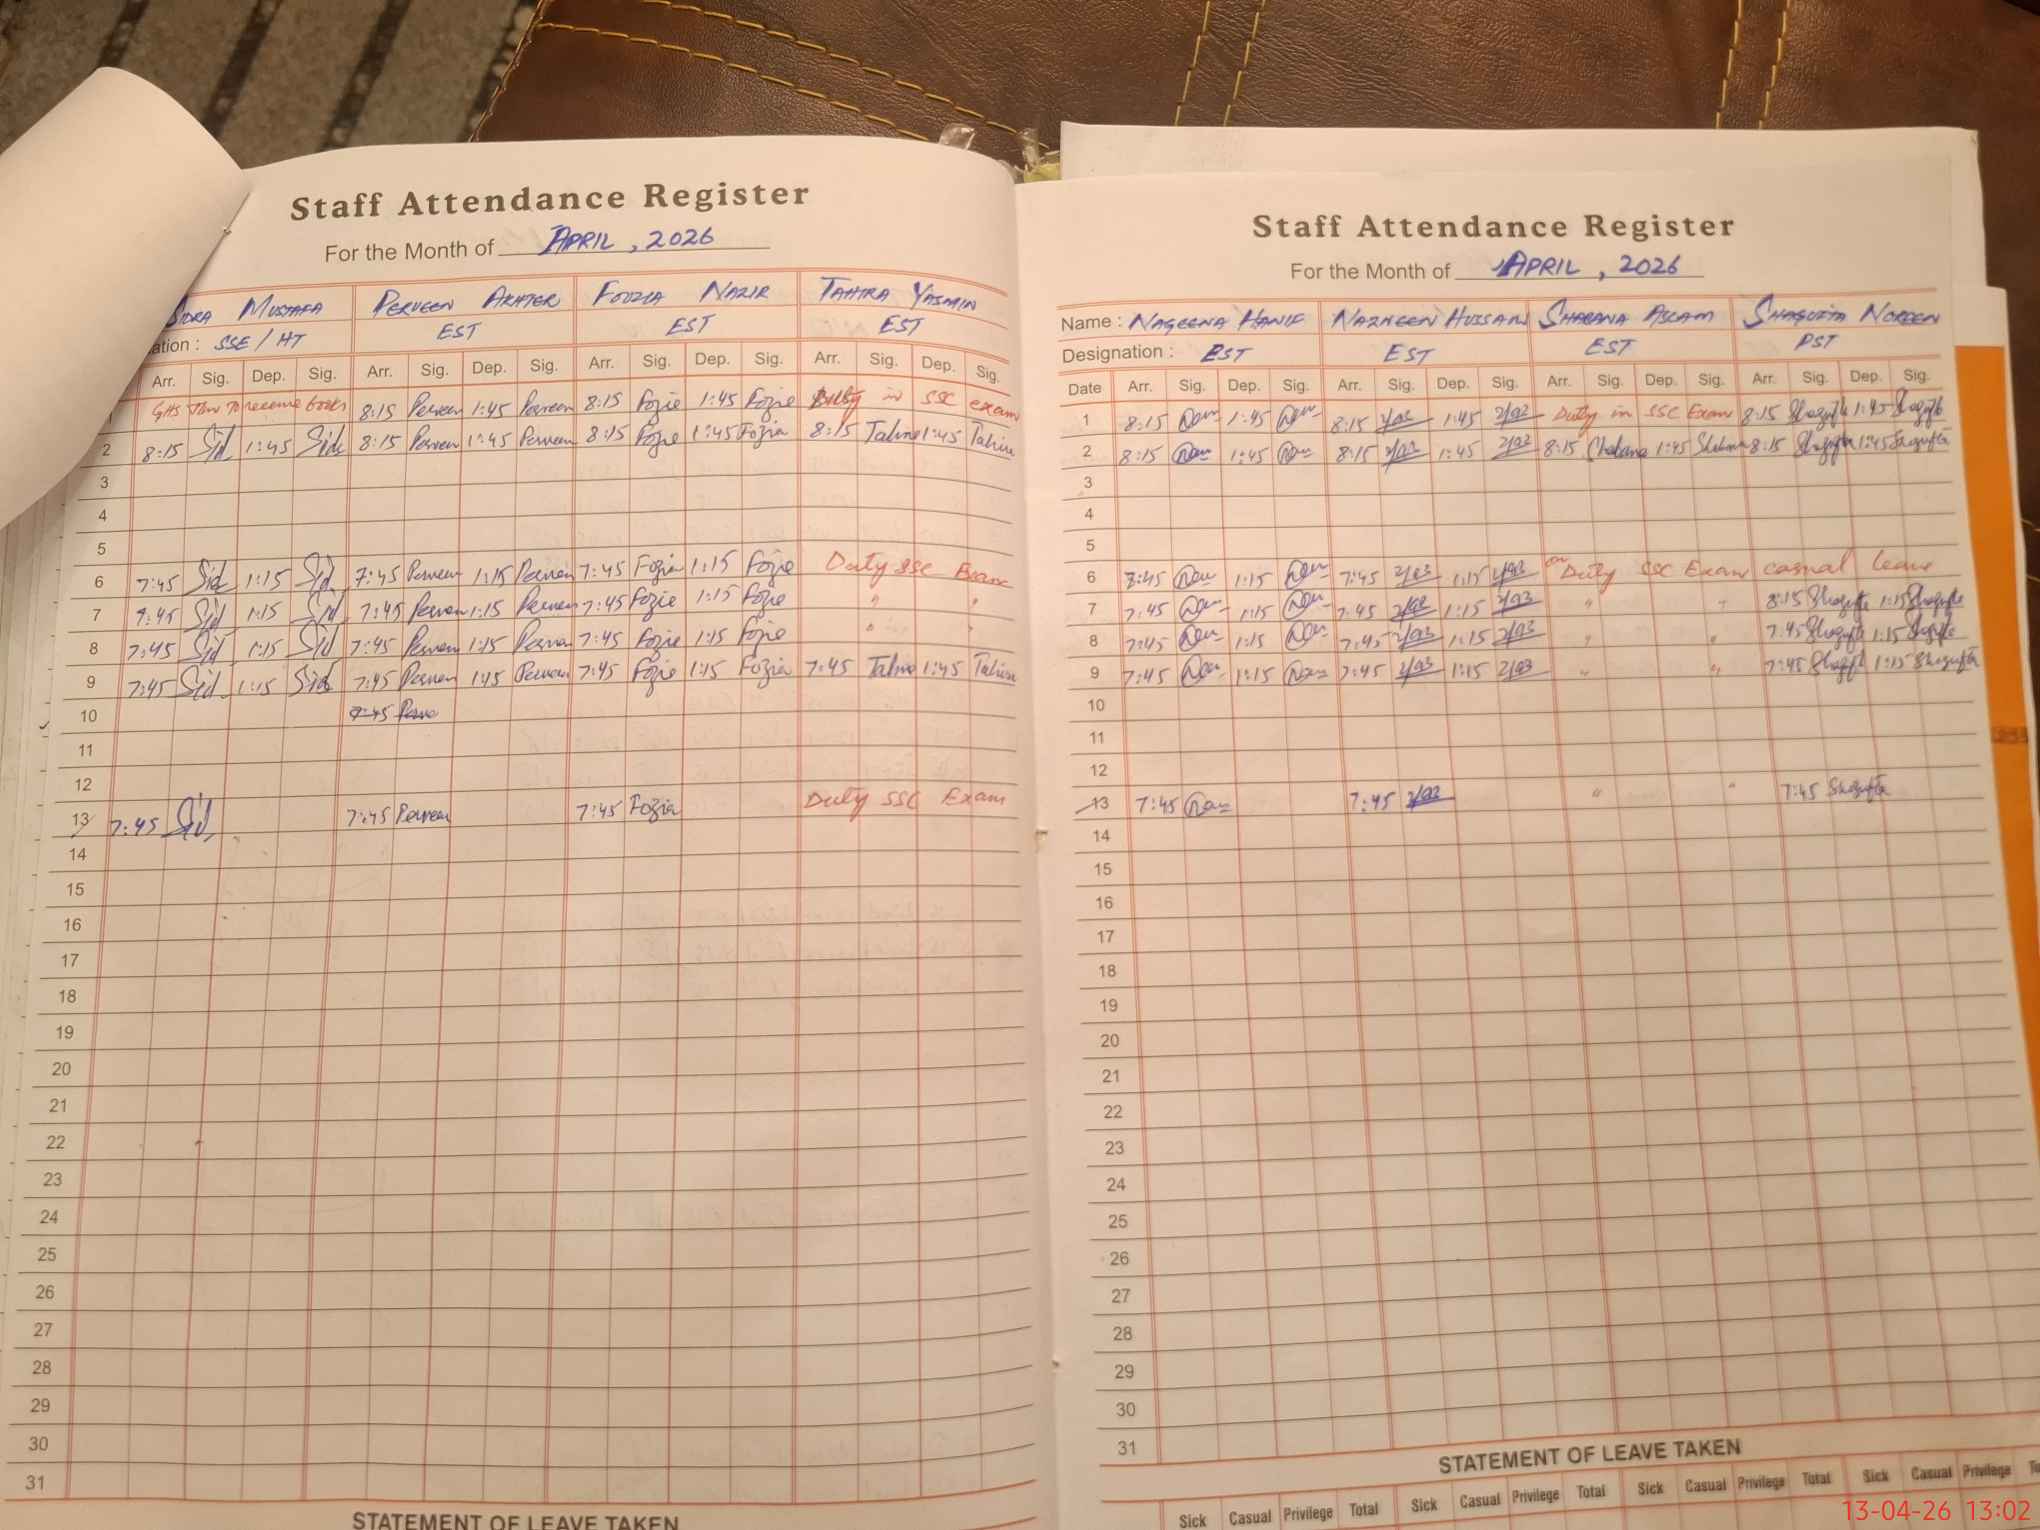 Staff Attendance Register
For the Month of APRIL, 2026
SIDRA MUSTAFA PERVEEN AKHTER FOUZIA NAZIR TAHIRA YASMIN
ation : SSE / HT EST EST EST
Arr. Sig. Dep. Sig. Arr. Sig. Dep. Sig. Arr. Sig. Dep. Sig. Arr. Sig. Dep. Sig.
1 GHS to receive books 8:15 Perveen 1:45 Perveen 8:15 Fozie 1:45 Fozie Duty in SSC exam
2 8:15 Sid 1:45 Sid 8:15 Perveen 1:45 Perveen 8:15 Fozie 1:45 Fozia 8:15 Tahira 1:45 Tahira
3
4
5
6 7:45 Sid 1:15 Sid 7:45 Perveen 1:15 Perveen 7:45 Fozia 1:15 Fozie Duty SSC Exam
7 7:45 Sid 1:15 Sid 7:45 Perveen 1:15 Perveen 7:45 Fozie 1:15 Fozie " "
8 7:45 Sid 1:15 Sid 7:45 Perveen 1:15 Perveen 7:45 Fozie 1:15 Fozie " "
9 7:45 Sid 1:15 Sid 7:45 Perveen 1:15 Perveen 7:45 Fozie 1:15 Fozia 7:45 Tahira 1:45 Tahira
10 7:45 Perve
11
12
13 7:45 Sid 7:45 Perveen 7:45 Fozia Duty SSC Exam
14
15
16
17
18
19
20
21
22
23
24
25
26
27
28
29
30
31
STATEMENT OF LEAVE TAKEN
Staff Attendance Register
For the Month of APRIL, 2026
Name : NAGEENA HANIF NAZNEEN HUSSAIN SHABANA ASLAM SHAGUFTA NOREEN
Designation : EST EST EST PST
Date Arr. Sig. Dep. Sig. Arr. Sig. Dep. Sig. Arr. Sig. Dep. Sig. Arr. Sig. Dep. Sig.
1 8:15 1:45 8:15 1:45 Duty in SSC Exam 8:15 Shagufta 1:45 Shagufta
2 8:15 1:45 8:15 1:45 8:15 Shabana 1:45 Shabana 8:15 Shagufta 1:45 Shagufta
3
4
5
6 7:45 1:15 7:45 1:15 on Duty SSC Exam casual leave
7 7:45 1:15 7:45 1:15 " " 8:15 Shagufta 1:15 Shagufta
8 7:45 1:15 7:45 1:15 " " 7:45 Shagufta 1:15 Shagufta
9 7:45 1:15 7:45 1:15 " " 7:45 Shagufta 1:15 Shagufta
10
11
12
13 7:45 7:45 " " 7:45 Shagufta
14
15
16
17
18
19
20
21
22
23
24
25
26
27
28
29
30
31
STATEMENT OF LEAVE TAKEN
Sick Casual Privilege Total Sick Casual Privilege Total Sick Casual Privilege Total Sick Casual Privilege To
13-04-26 13:02